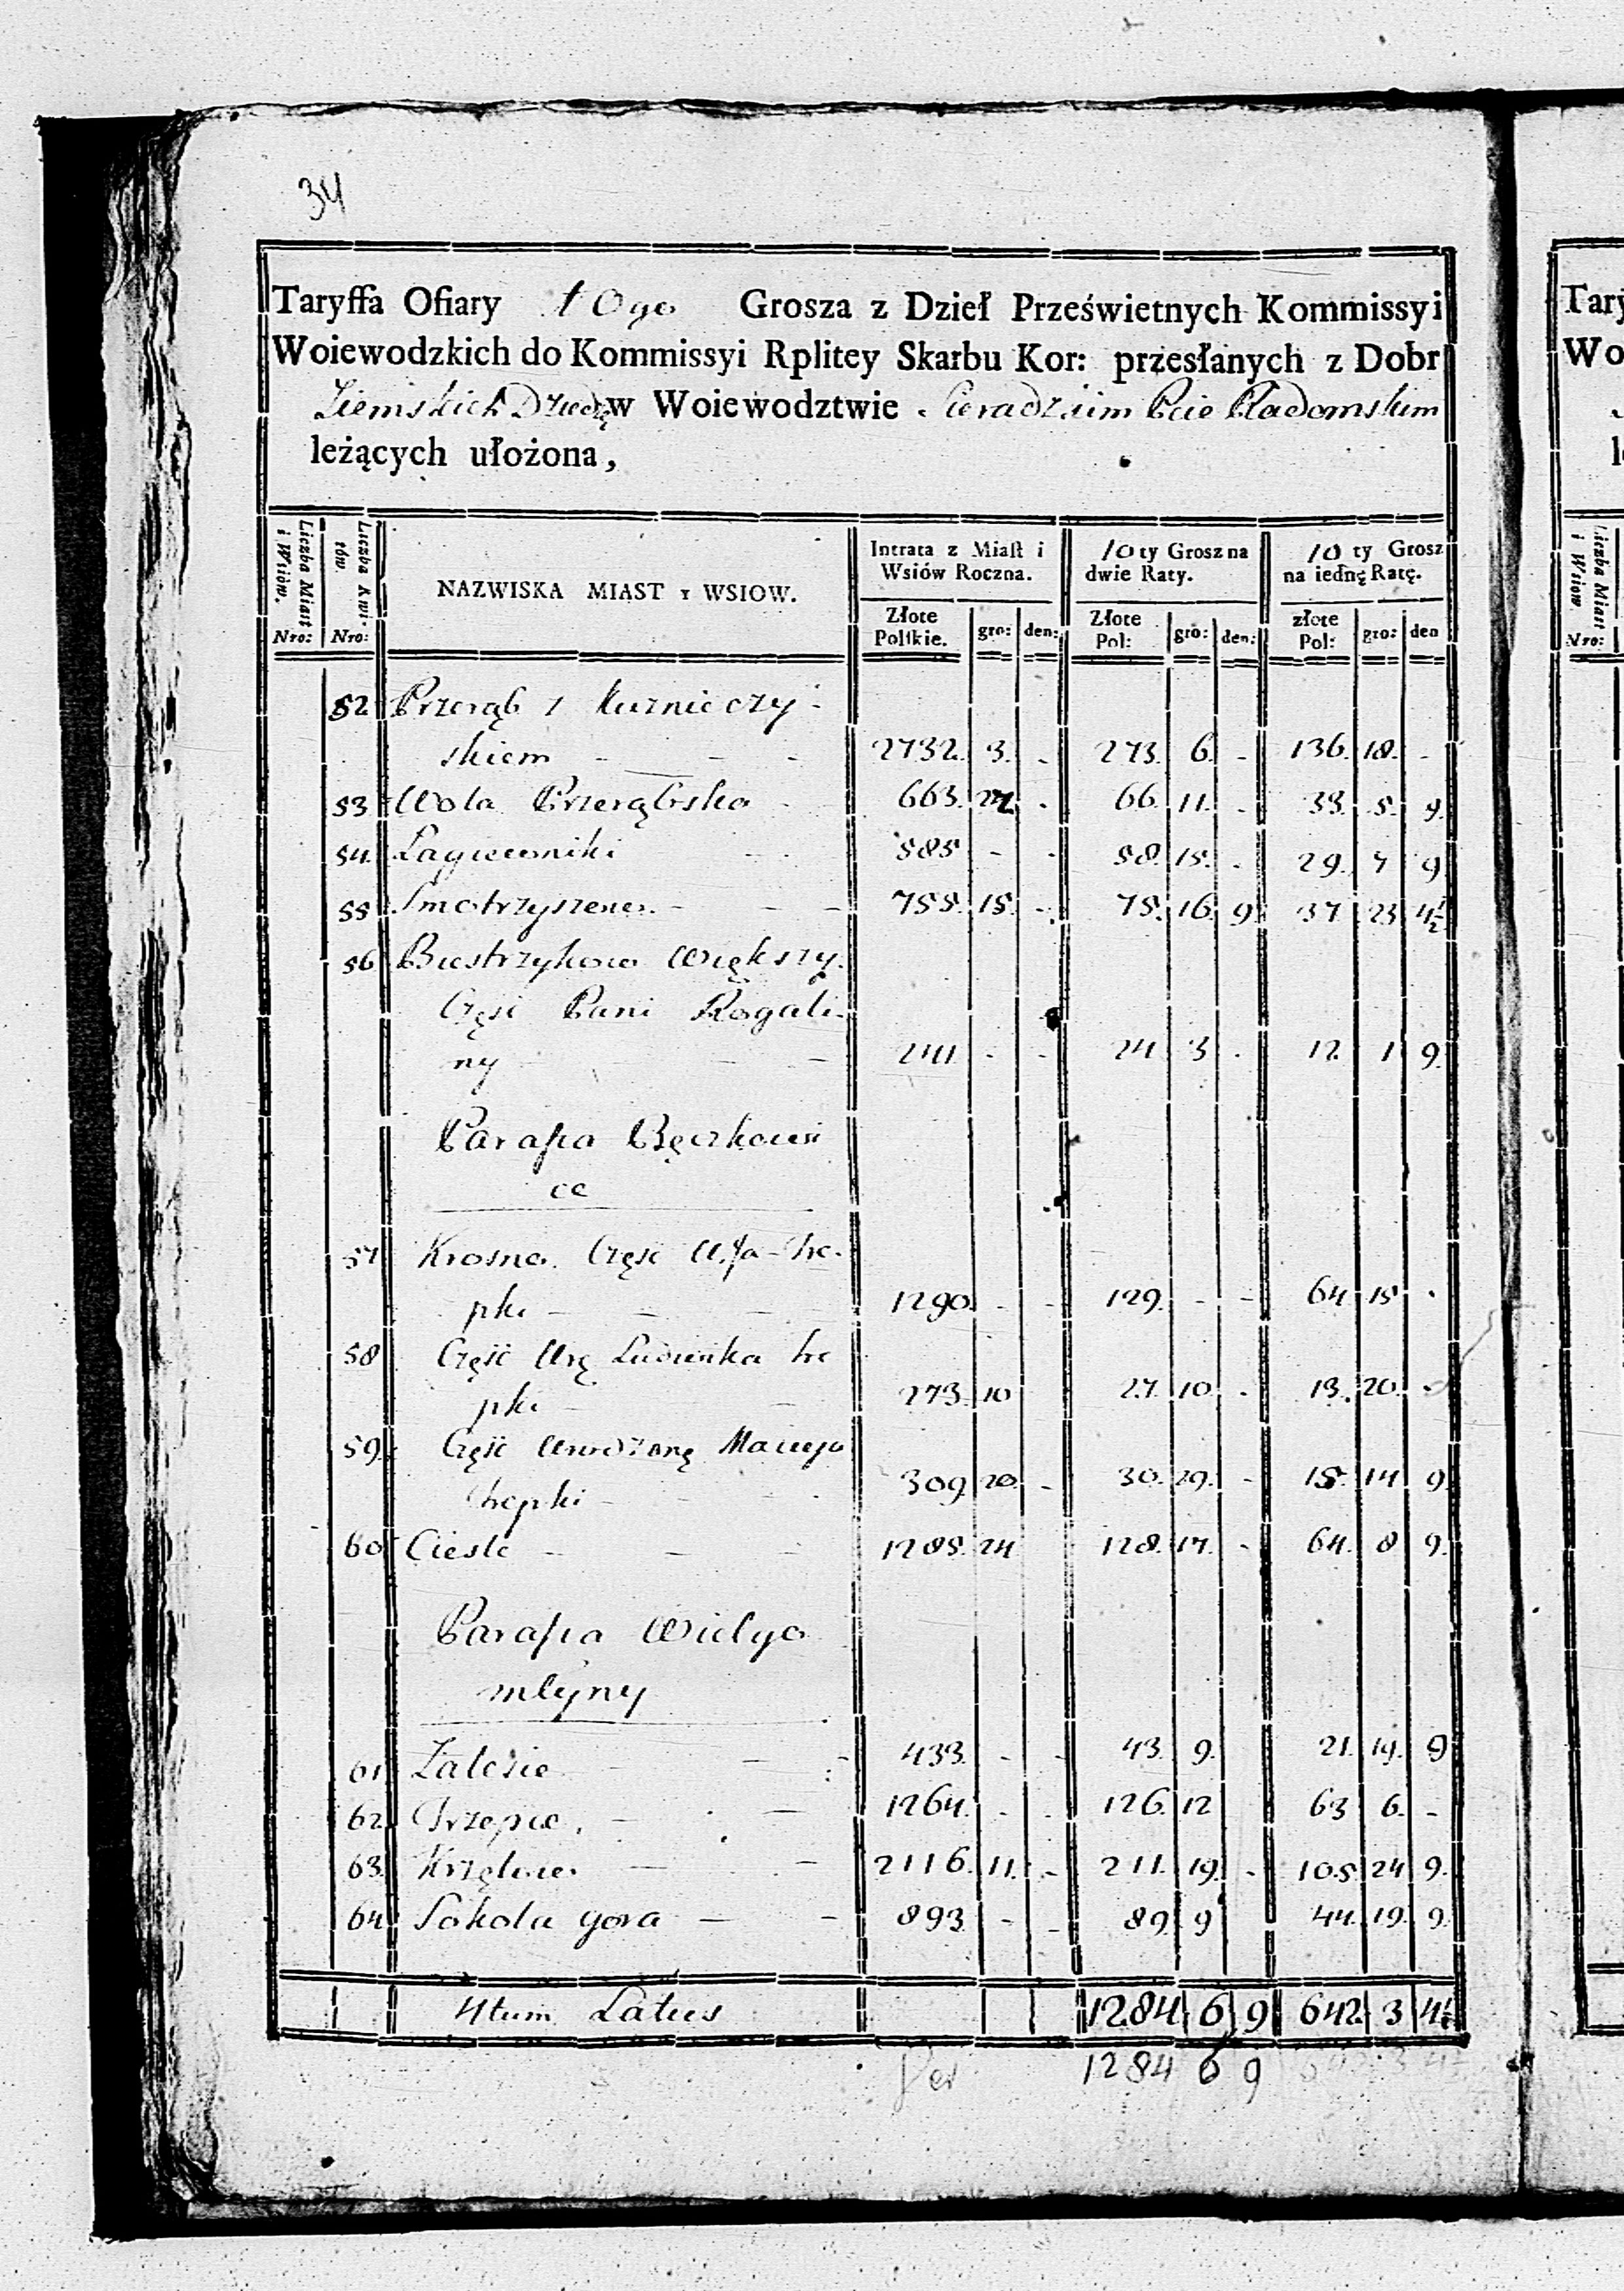 34
Taryffa Ofiary 10go Grosza z Dzieł Prześwietnych Kommissyi
Woiewodzkich do Kommissyi Rplitey Skarbu Kor: przesłanych z Dobr
Ziemskich Dziedz w Woiewodztwie Sieradzkim Pcie Radomskim
leżących ułożona,
Liczba Miast i Wsiów. Nro: Liczba Kwitów. Nro: NAZWISKA MIAST Y WSIOW. Intrata z Miast i Wsiów Roczna. 10ty Grosz na dwie Raty. 10 ty Grosz na iednę Ratę.
Złote Polskie. gro: den: Złote Pol: gro: den: złote Pol: gro: den
52 Przerąb z Kuźnieczy-
skiem - - - 2732. 3. - 273. 6. - 136. 18. -
53 Wola Przerąbska - 663. 22. - 66. 11. - 33. 5. 9.
54. Łagiewniki - - 585 - - 58. 15. - 29. 7 9
55 Smotrzyszewo. - - - 755. 15. - 75. 16. 9. 37 23 4½
56 Biestrzykow Większy.
Część Pani Rogali-
ny - - 241. - - 24. 3 - 12. 1 9.
Parafia Bęczkowi
ce
57 Krosno. Część
pki - - - 1290. - - 129. - - 64. 15 -
58 Część Ludwika
pki - - 273. 10 27. 10. - 13. 20. -
59. Część Urodzone Macieja
- - - 309. 20. - 30. 29. - 15. 14 9.
60 Ciesle - - - 1285. 24 128. 17. - 64. 8 9.
Parafia Wielgo
młyny
61 Zalesie - - - 433. - - 43. 9. 21. 19. 9
62 Trzepce. - - 1264. - - 126. 12 63 6. -
63. Krzętow - - 2116. 11. - 211. 19. - 105. 24 9.
64 Sokola gora - - 893. - - 89. 9 44. 19. 9.
4tum Latus 1284 6 9 642. 3 4½
1284 6 9
Tary
Wo
Liczba Miast i Wsiow Nro: